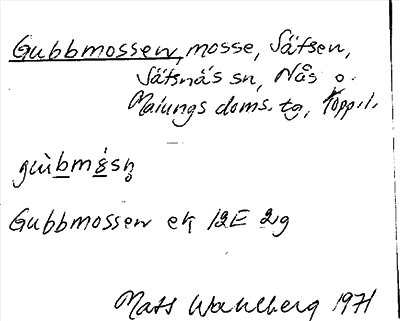 Gubbmossen, mosse, Säfsen,
Säfsnäs sn, Nås o.
Malungs doms. tg, Kopp. l.
gubm8sn
Gubbmossen ek 12E 2g
Mats Wahlberg 1971